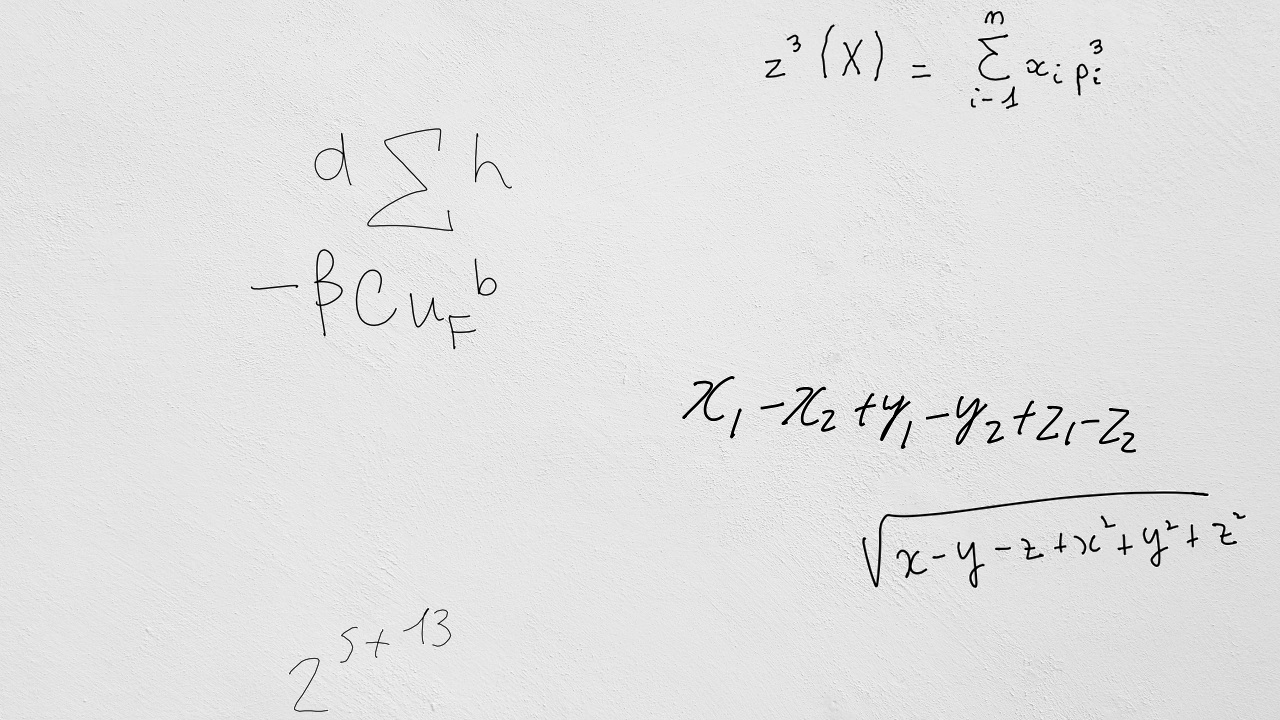 z³(X) = ∑ⁿᵢ₋₁ xᵢ pᵢ³
d ∑ h
−βCu_F^b
x₁ − x₂ + y₁ − y₂ + z₁ − z₂
√(x − y − z + x² + y² + z²)
2^(5+13)